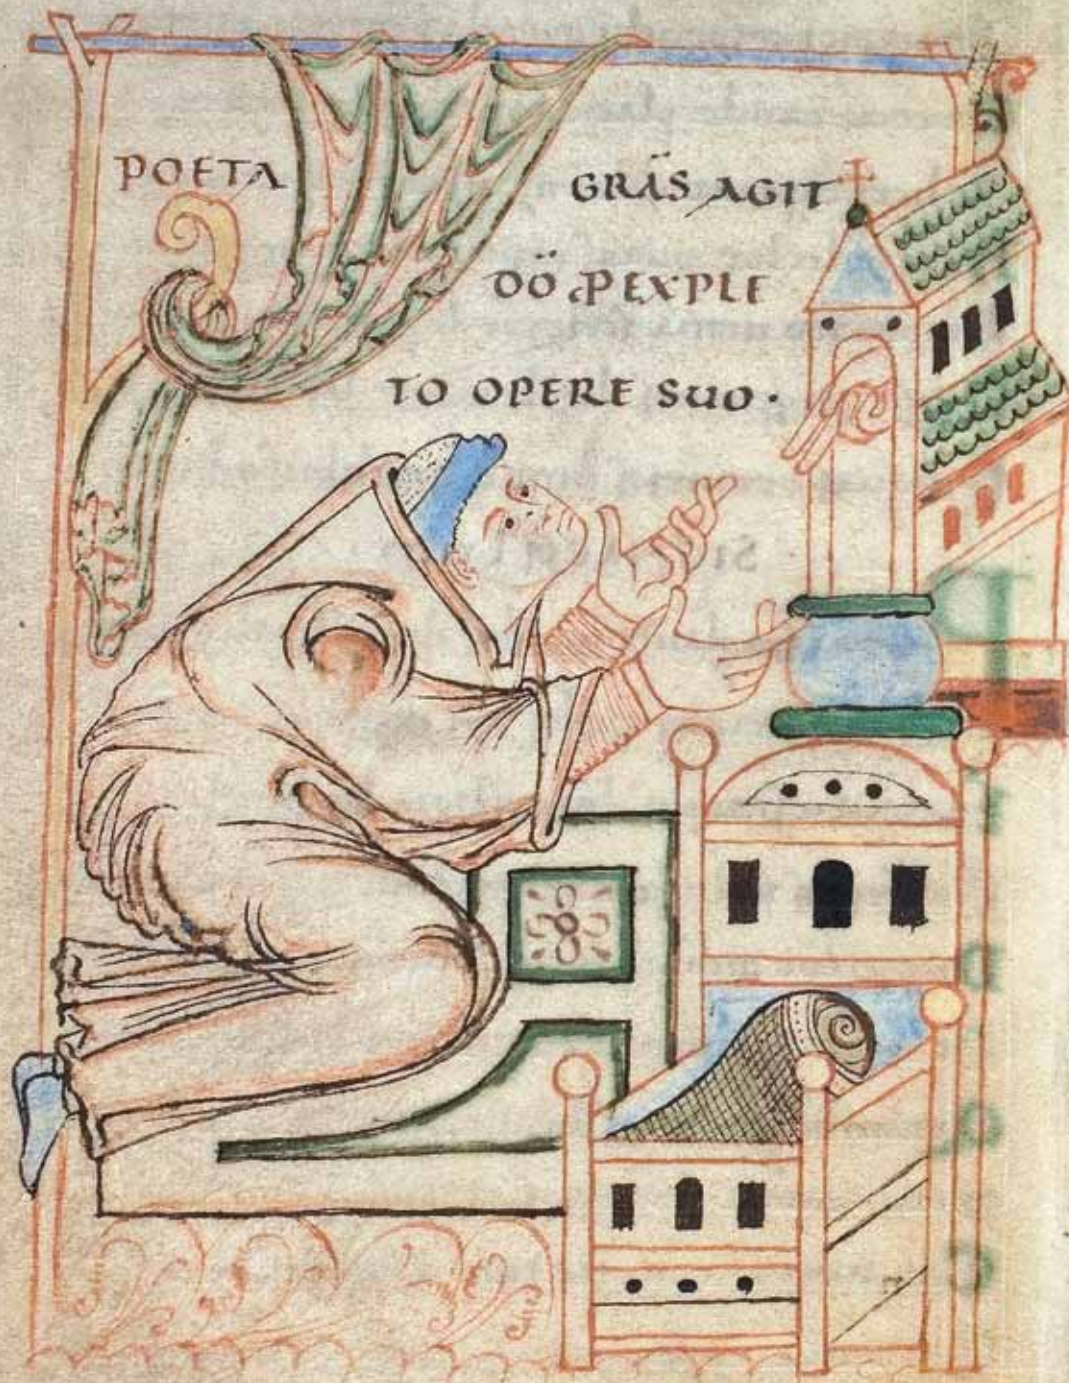 POETA GRA̅S AGIT
DO̅ P EXPLE
TO OPERE SUO·